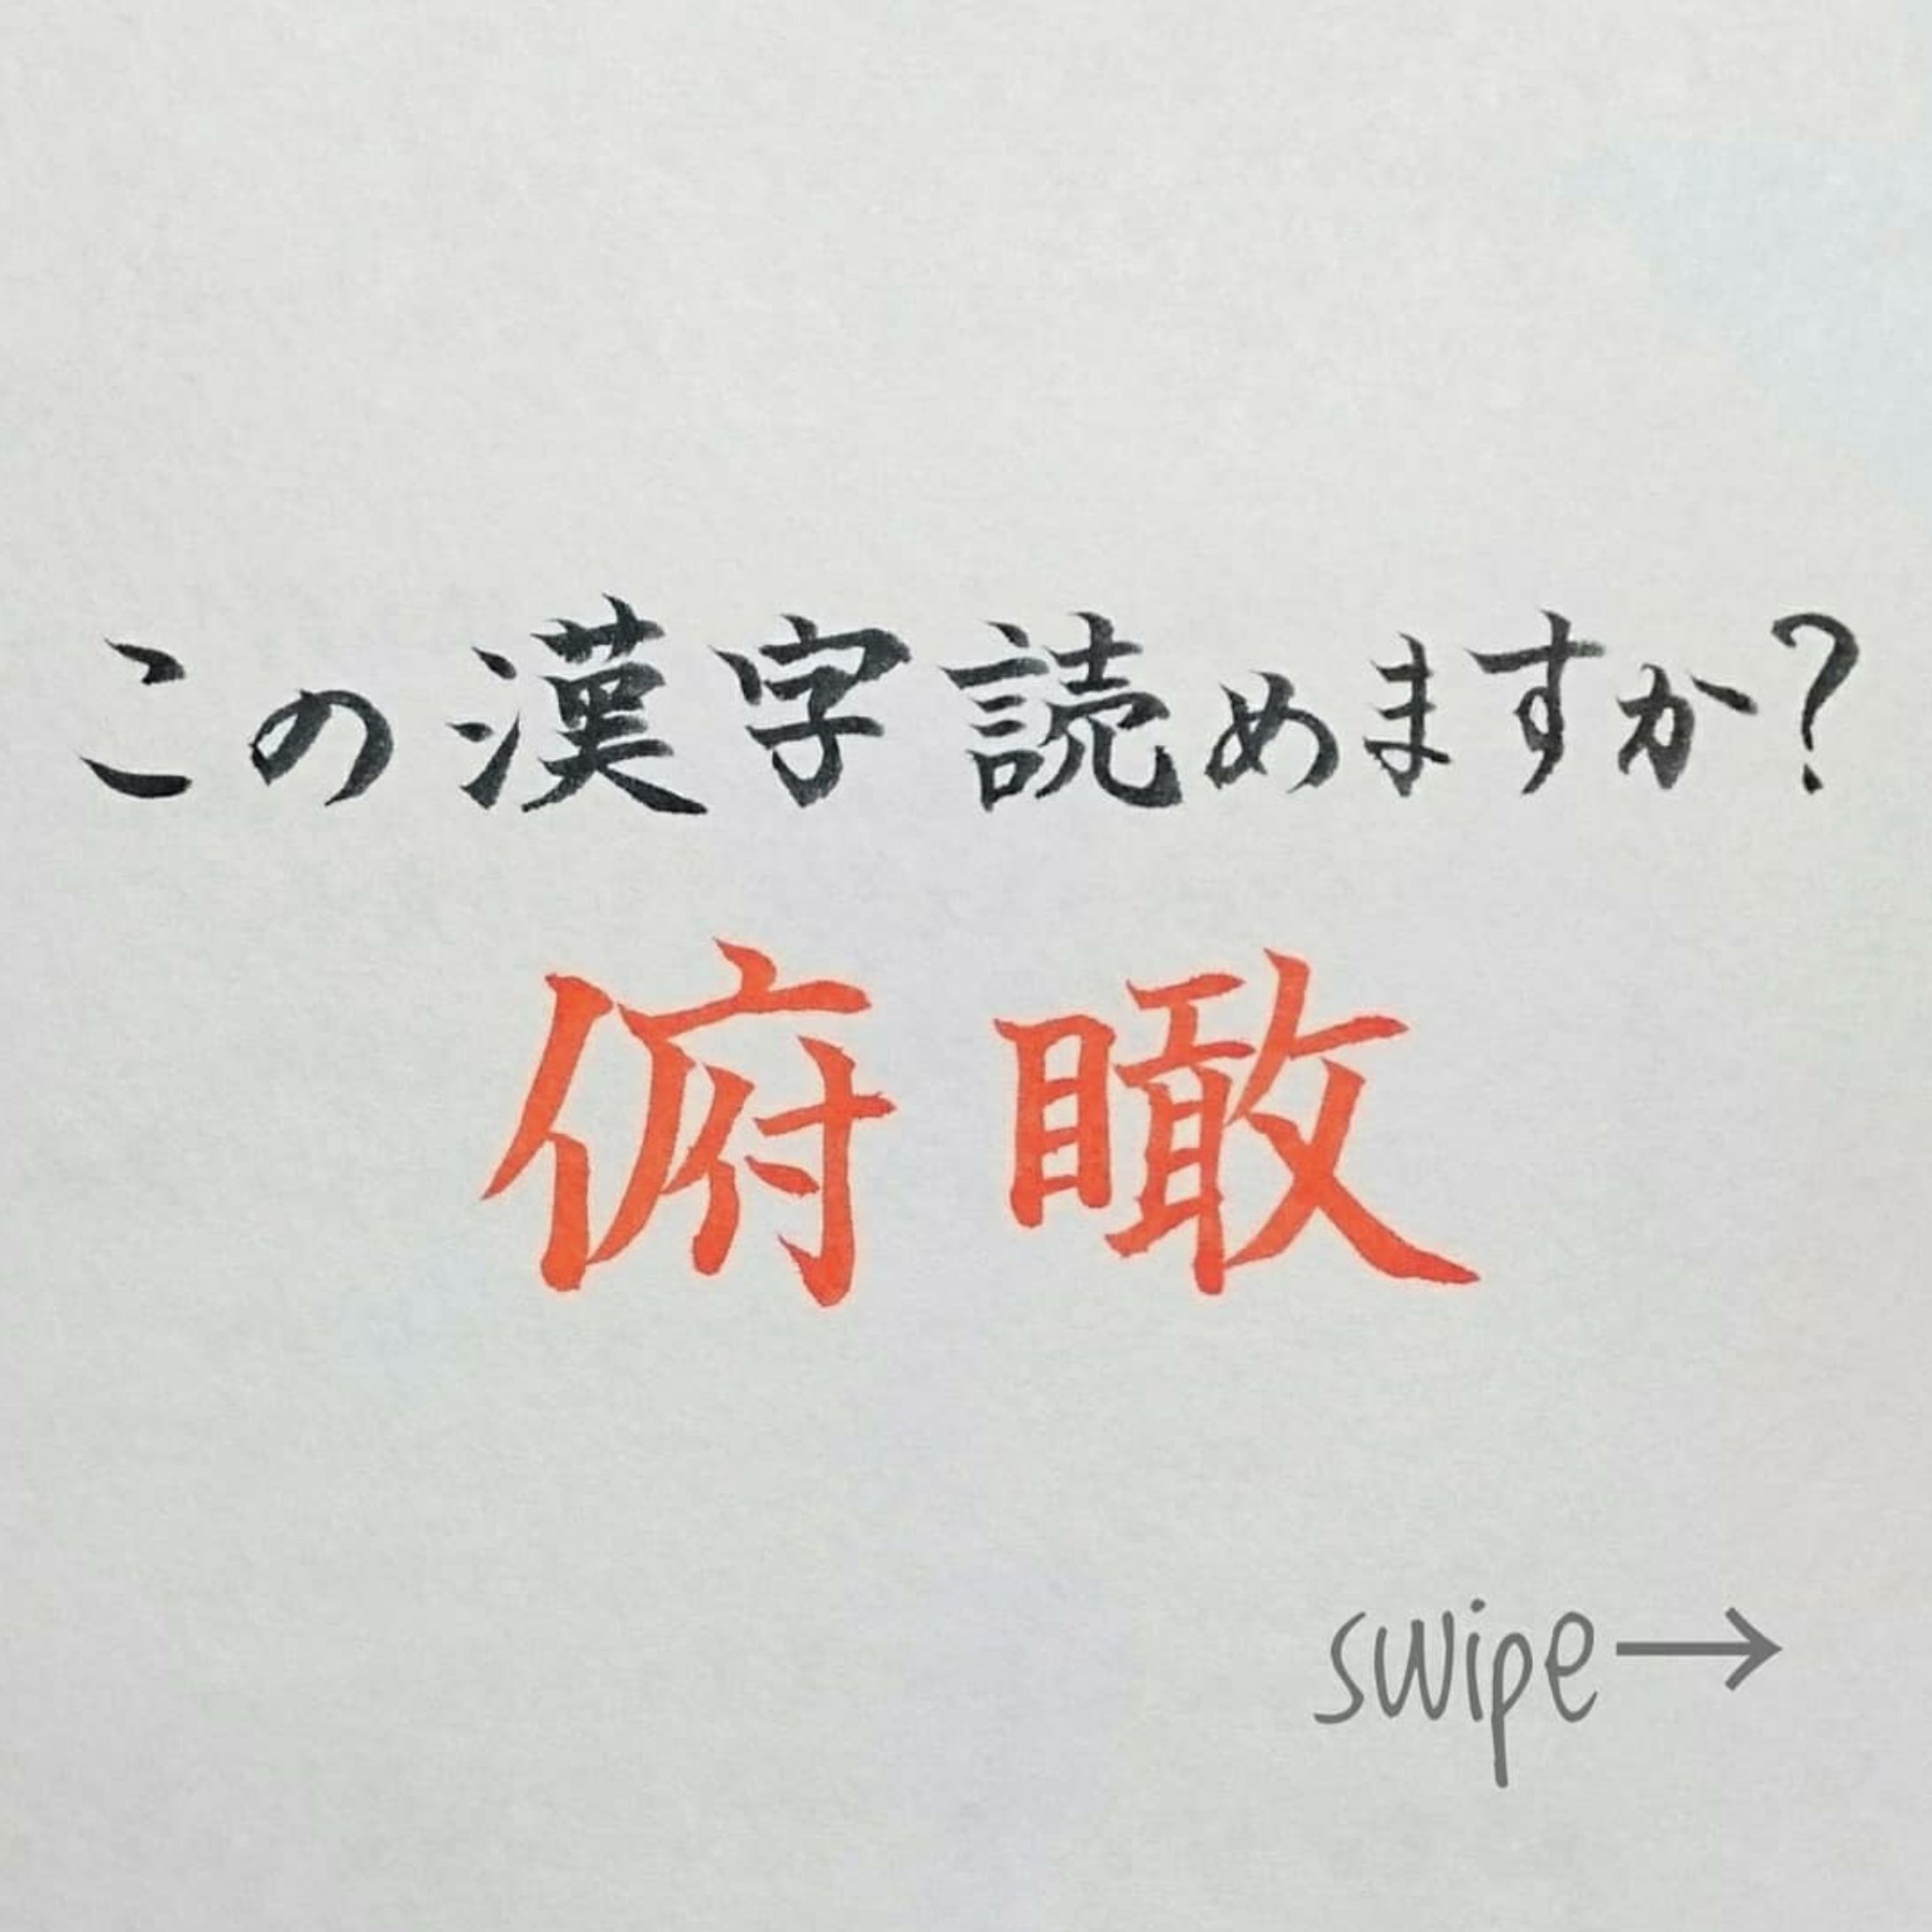 この漢字読めますか?
俯瞰
swipe→